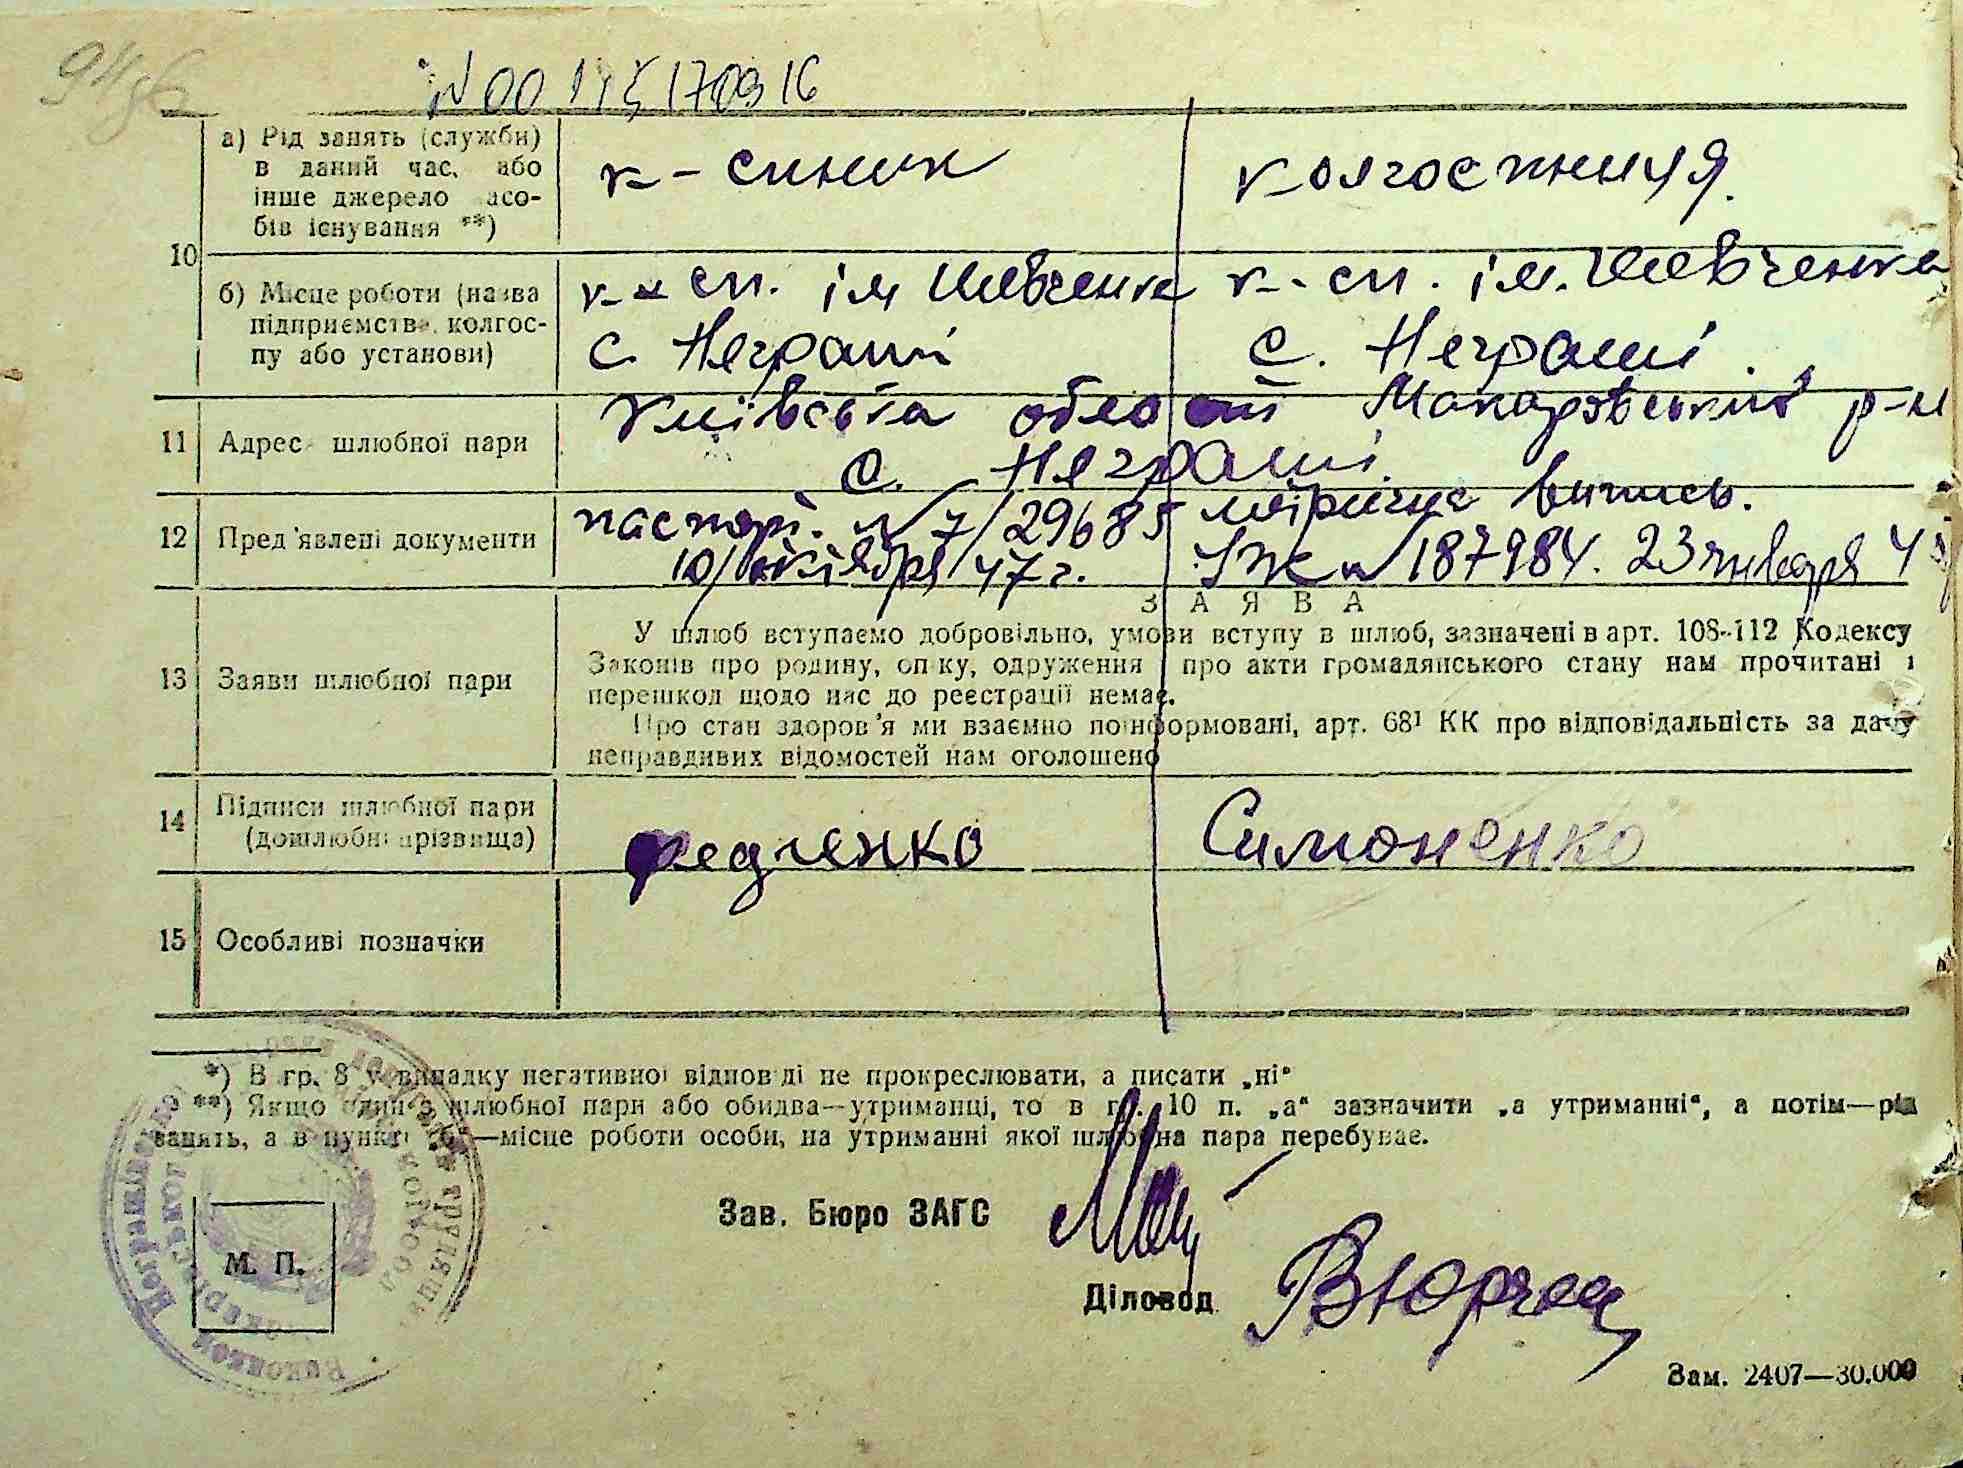 а) Рід занять (служби)
в даний час, або
інше джерело засо-
бів існування **)
к-спник
колгоспниця.
10
б) Місце роботи (назва
підприємства, колгос-
пу або установи)
к-сп. ім Шевченка
к-сп. ім. Шевченка
с. Неграші
с. Неграші.
11 Адрес шлюбної пари
Київська область Макарівський р-н
с. Неграші.
12 Пред'явлені документи
паспорт. № 7/29685
10/октября/47 г.
метричне випись.
№ 187984. 23 января
ЗАЯВА
13 Заяви шлюбної пари
У шлюб вступаємо добровільно, умови вступу в шлюб, зазначені в арт. 108-112 Кодексу
Законів про родину, опіку, одруження і про акти громадянського стану нам прочитані і
перешкод щодо нас до реєстрації немає.
Про стан здоров'я ми взаємно поінформовані, арт. 68¹ КК про відповідальність за дачу
неправдивих відомостей нам оголошено
14 Підписи шлюбної пари
(дошлюбні прізвища)
Федченко
Симоненко
15 Особливі позначки
*) В гр. 8 у випадку негативної відповіді не прокреслювати, а писати „ні“
**) Якщо один з шлюбної пари або обидва—утриманці, то в гр. 10 п. „а“ зазначити „а утриманні“, а потім—рід
занять, а в пункті „б“—місце роботи особи, на утриманні якої шлюбна пара перебуває.
Зав. Бюро ЗАГС
М. П.
Діловод
Зам. 2407—30.000